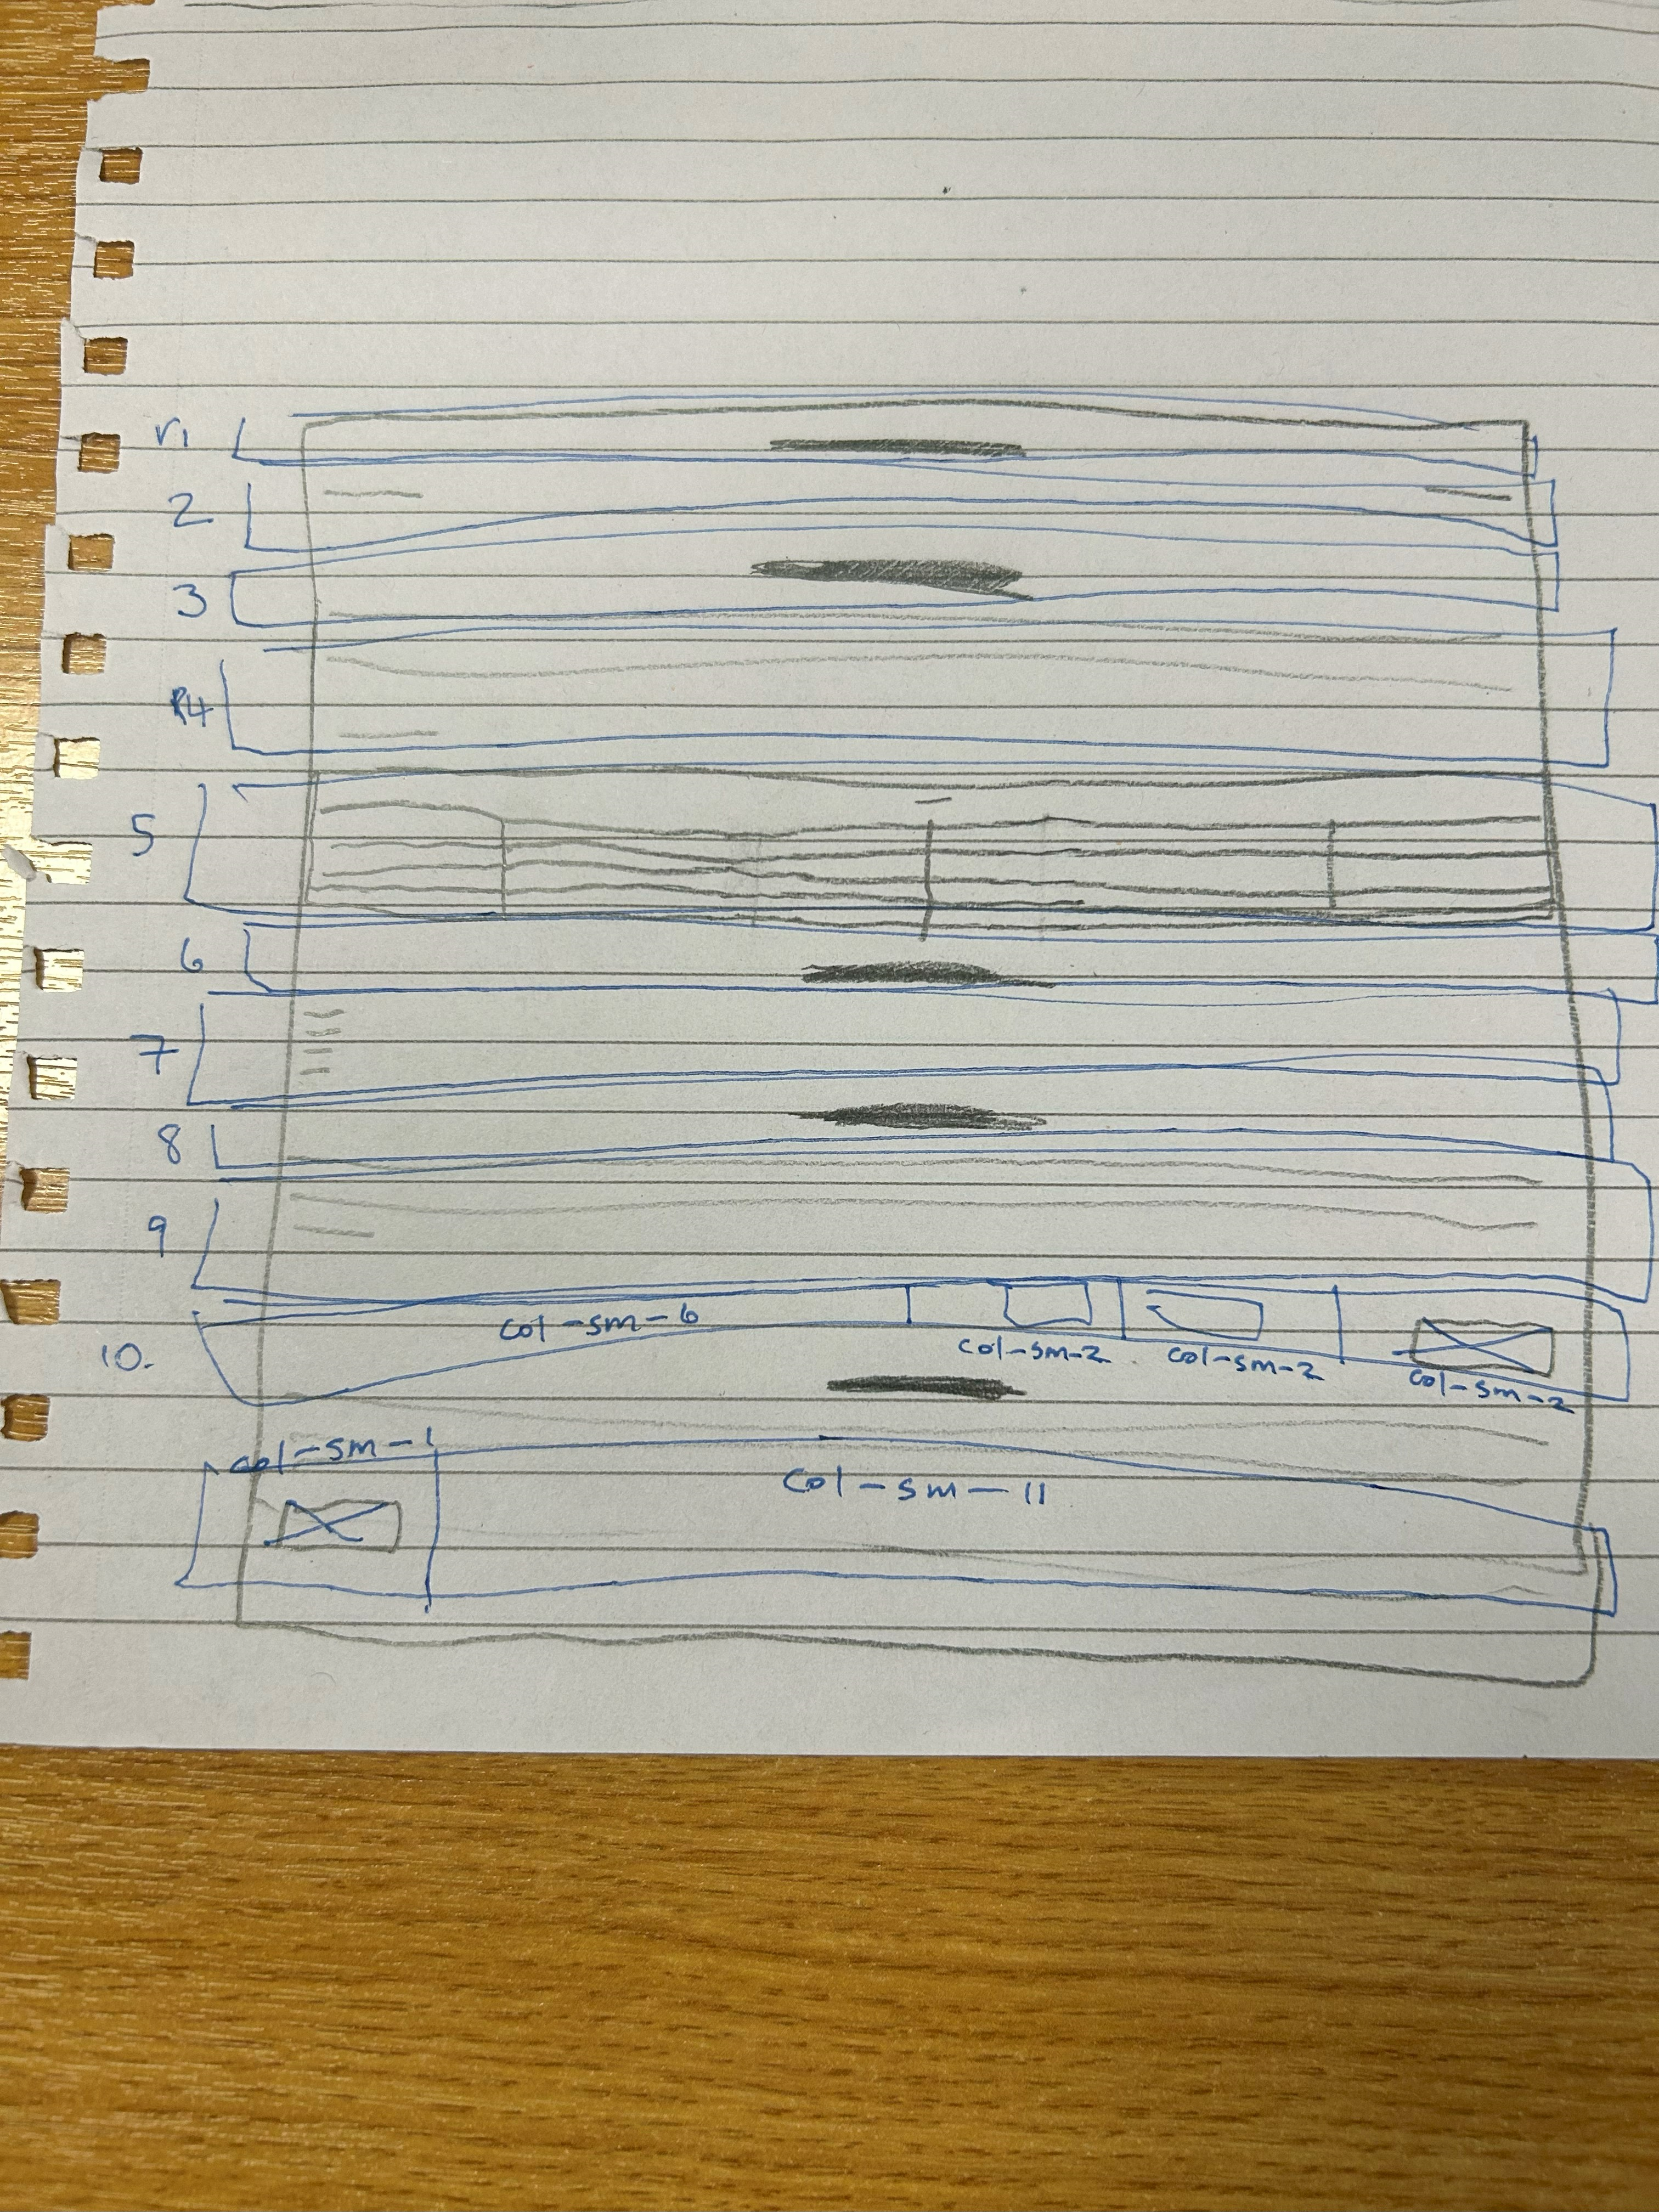 r1
2
3
R4
5
6
7
8
9
10. col-sm-6 col-sm-2 col-sm-2 col-sm-2
col-sm-1 col-sm-11